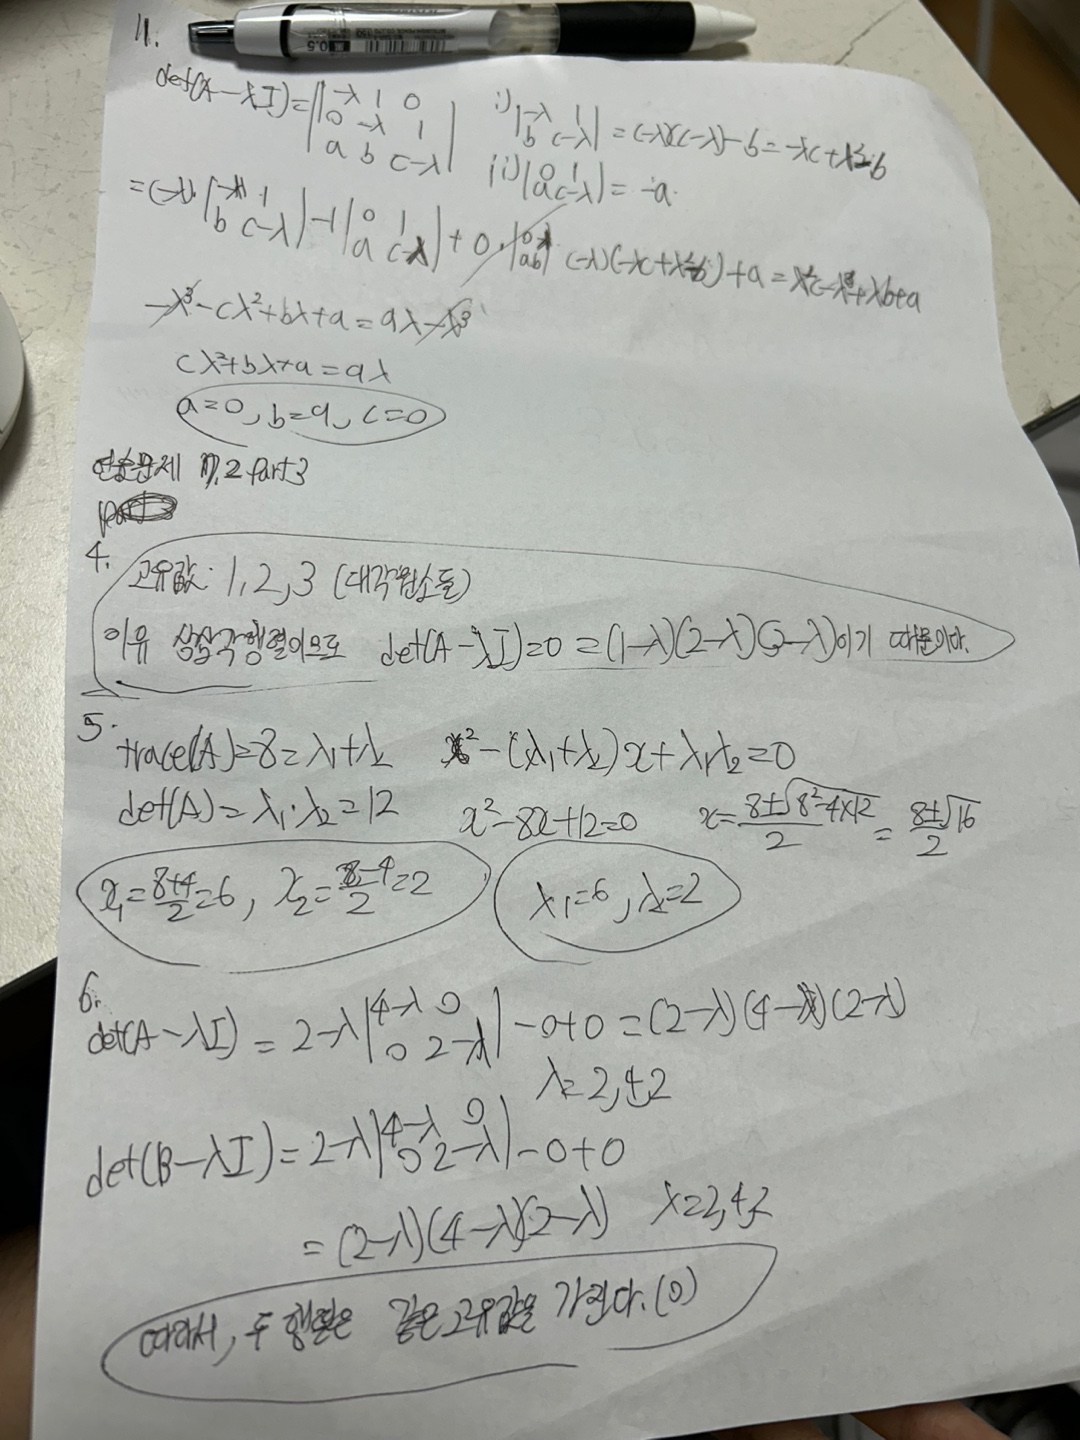 11.
det(A-λI)=|-λ 1 0
0 -λ 1
a b c-λ|
i) |-λ 1
b c-λ| = (-λ)(c-λ)-b = -λc+λ²-b
ii) |0 1
a c-λ| = -a.
=(-λ)·|-λ 1
b c-λ| -1 |0 1
a c-λ| + 0·|0 -λ
a b|
(-λ)(-λc+λ²-b)+a = λ²c-λ³+λb+a
-λ³-cλ²+bλ+a=9λ-λ³
cλ²+bλ+a=9λ
a=0, b=9, c=0
연습문제 7.2 Part3
4.
고유값: 1, 2, 3 (대각원소들)
이유 상삼각행렬이므로 det(A-λI)=0 =(1-λ)(2-λ)(3-λ)이기 때문이다.
5.
trace(A)=8=λ₁+λ₂ x²-(λ₁+λ₂)x+λ₁λ₂=0
det(A)=λ₁·λ₂=12 x²-8x+12=0 x=8±√8²-4×12/2 = 8±√16/2
x₁=8+4/2=6, x₂=8-4/2=2 λ₁=6, λ₂=2
6.
det(A-λI) = 2-λ|4-λ 0
0 2-λ| -0+0 =(2-λ)(4-λ)(2-λ)
λ=2,4,2
det(B-λI)=2-λ|4-λ 0
0 2-λ|-0+0
=(2-λ)(4-λ)(2-λ) λ=2,4,2
따라서, 두 행렬은 같은 고유값을 가진다.(O)
0.5